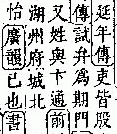 延年傳吏皆股
傳試弁爲期門
又姓與卞通前
湖州府城北
怡廣韻已也書